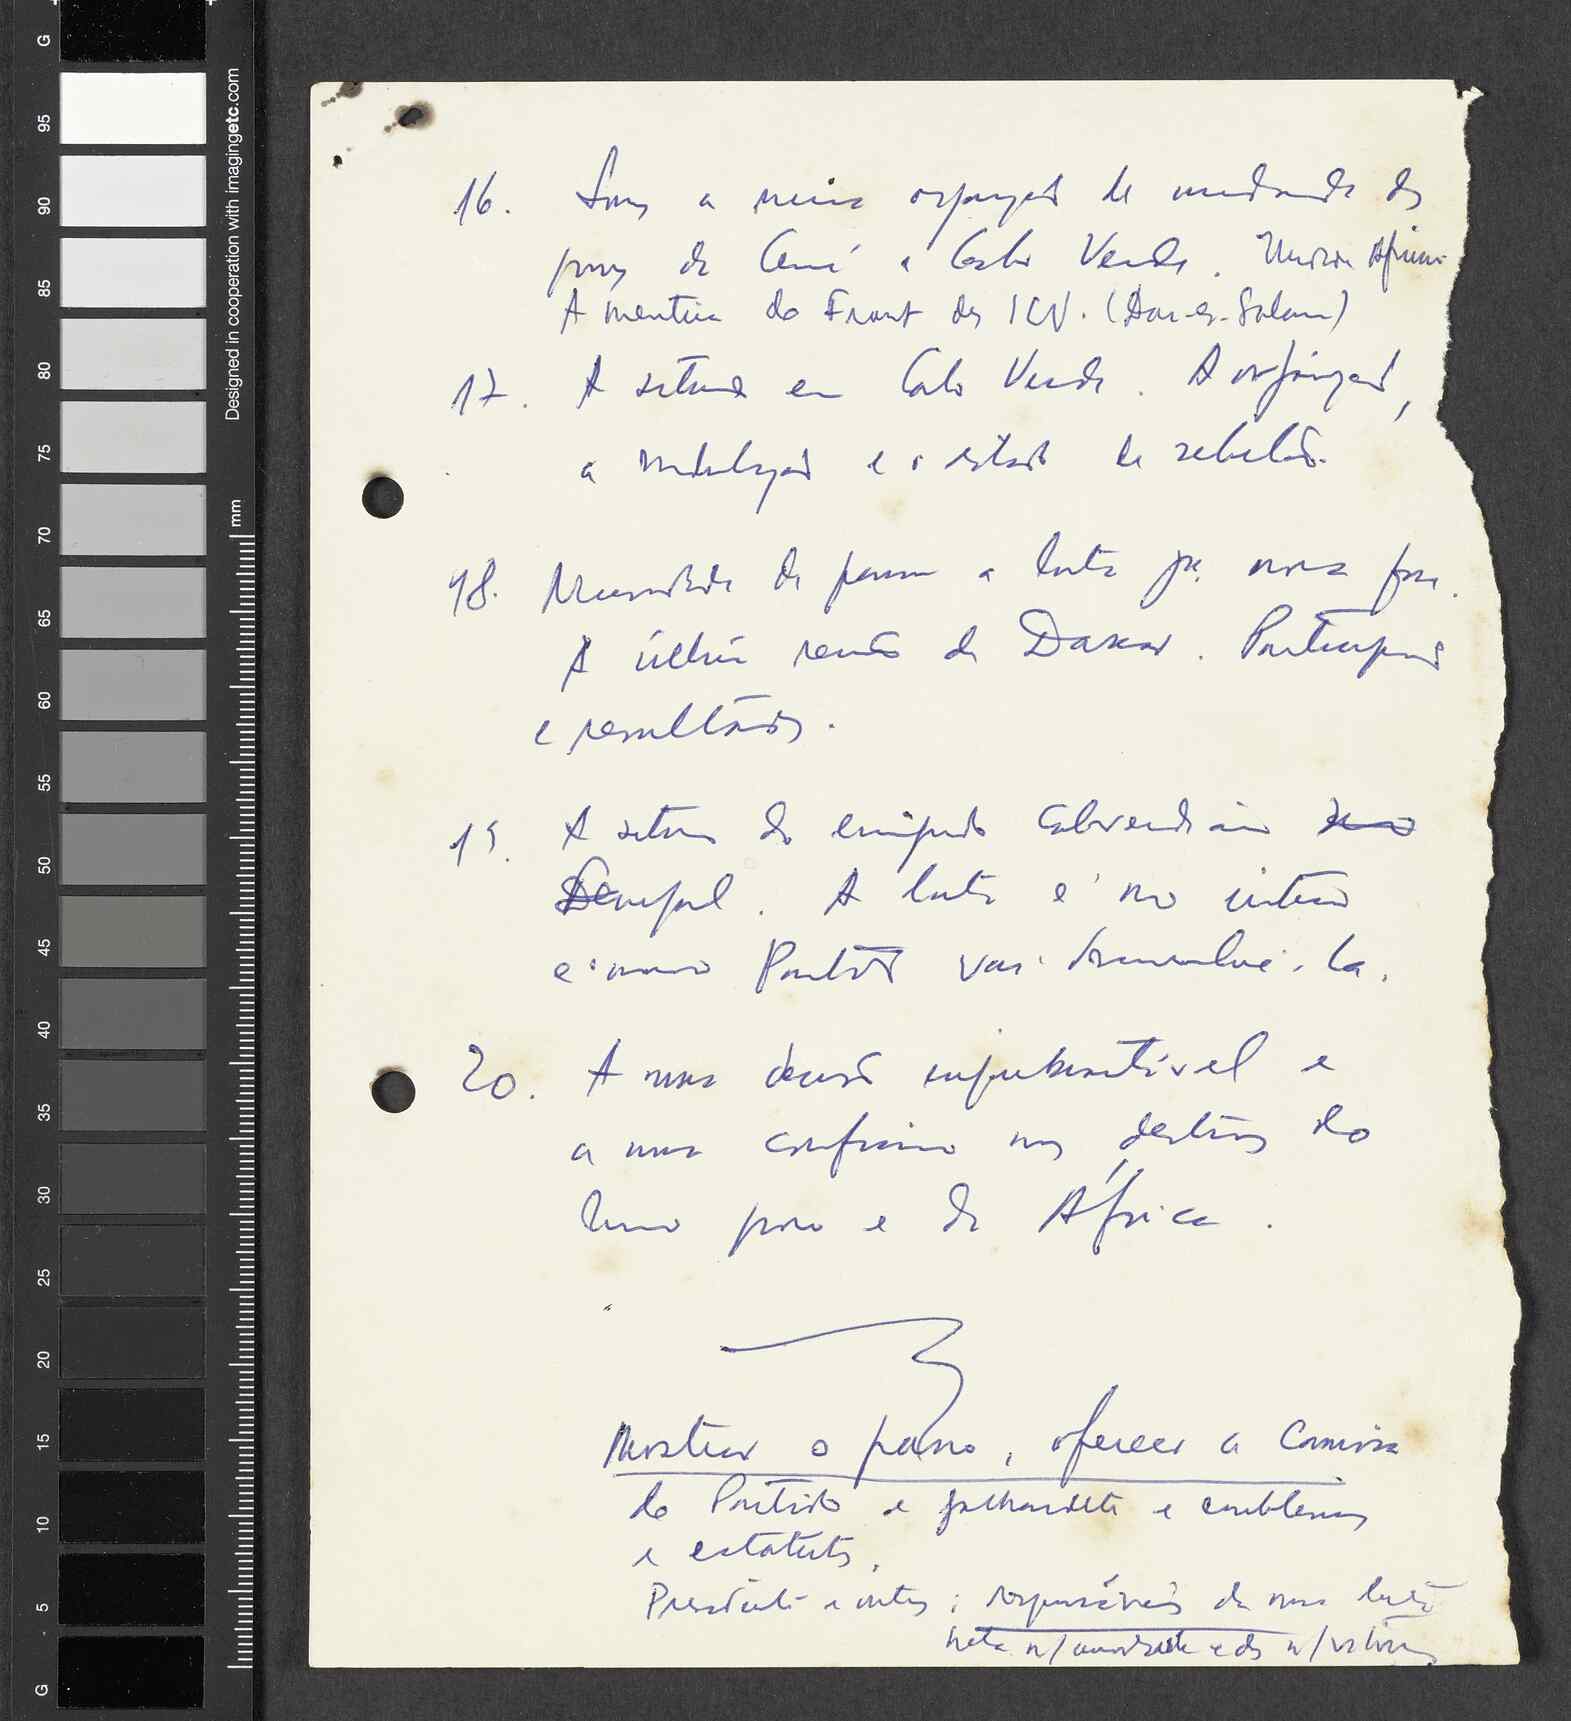 G
95
90
85
80
75
70
65
60
55
50
45
40
35
30
25
20
15
10
5
G
Designed in cooperation with imagingetc.com
mm
16. Somos a única organização de
povos da Guiné e Cabo Verde.
A mentira do Front des ICV. (Dar-es-Salam)
17. A situação em Cabo Verde. A organização,
a mobilização e o estado de rebelião.
18. Necessidade de passar a luta para nova fase.
A última reunião de Dakar. Participação
e resultados.
19. A situação do emigrado caboverdiano no
Senegal. A luta é no interior
e o nosso Partido vai desenvolvê-la.
20. A nossa decisão inquebrantável e
a nossa confiança nos destinos do
nosso povo e da África.
Mostrar o pano, oferecer a camisa
do Partido e galhardete e emblemas
e estatutos.
Presidente e outros: responsáveis da nossa luta